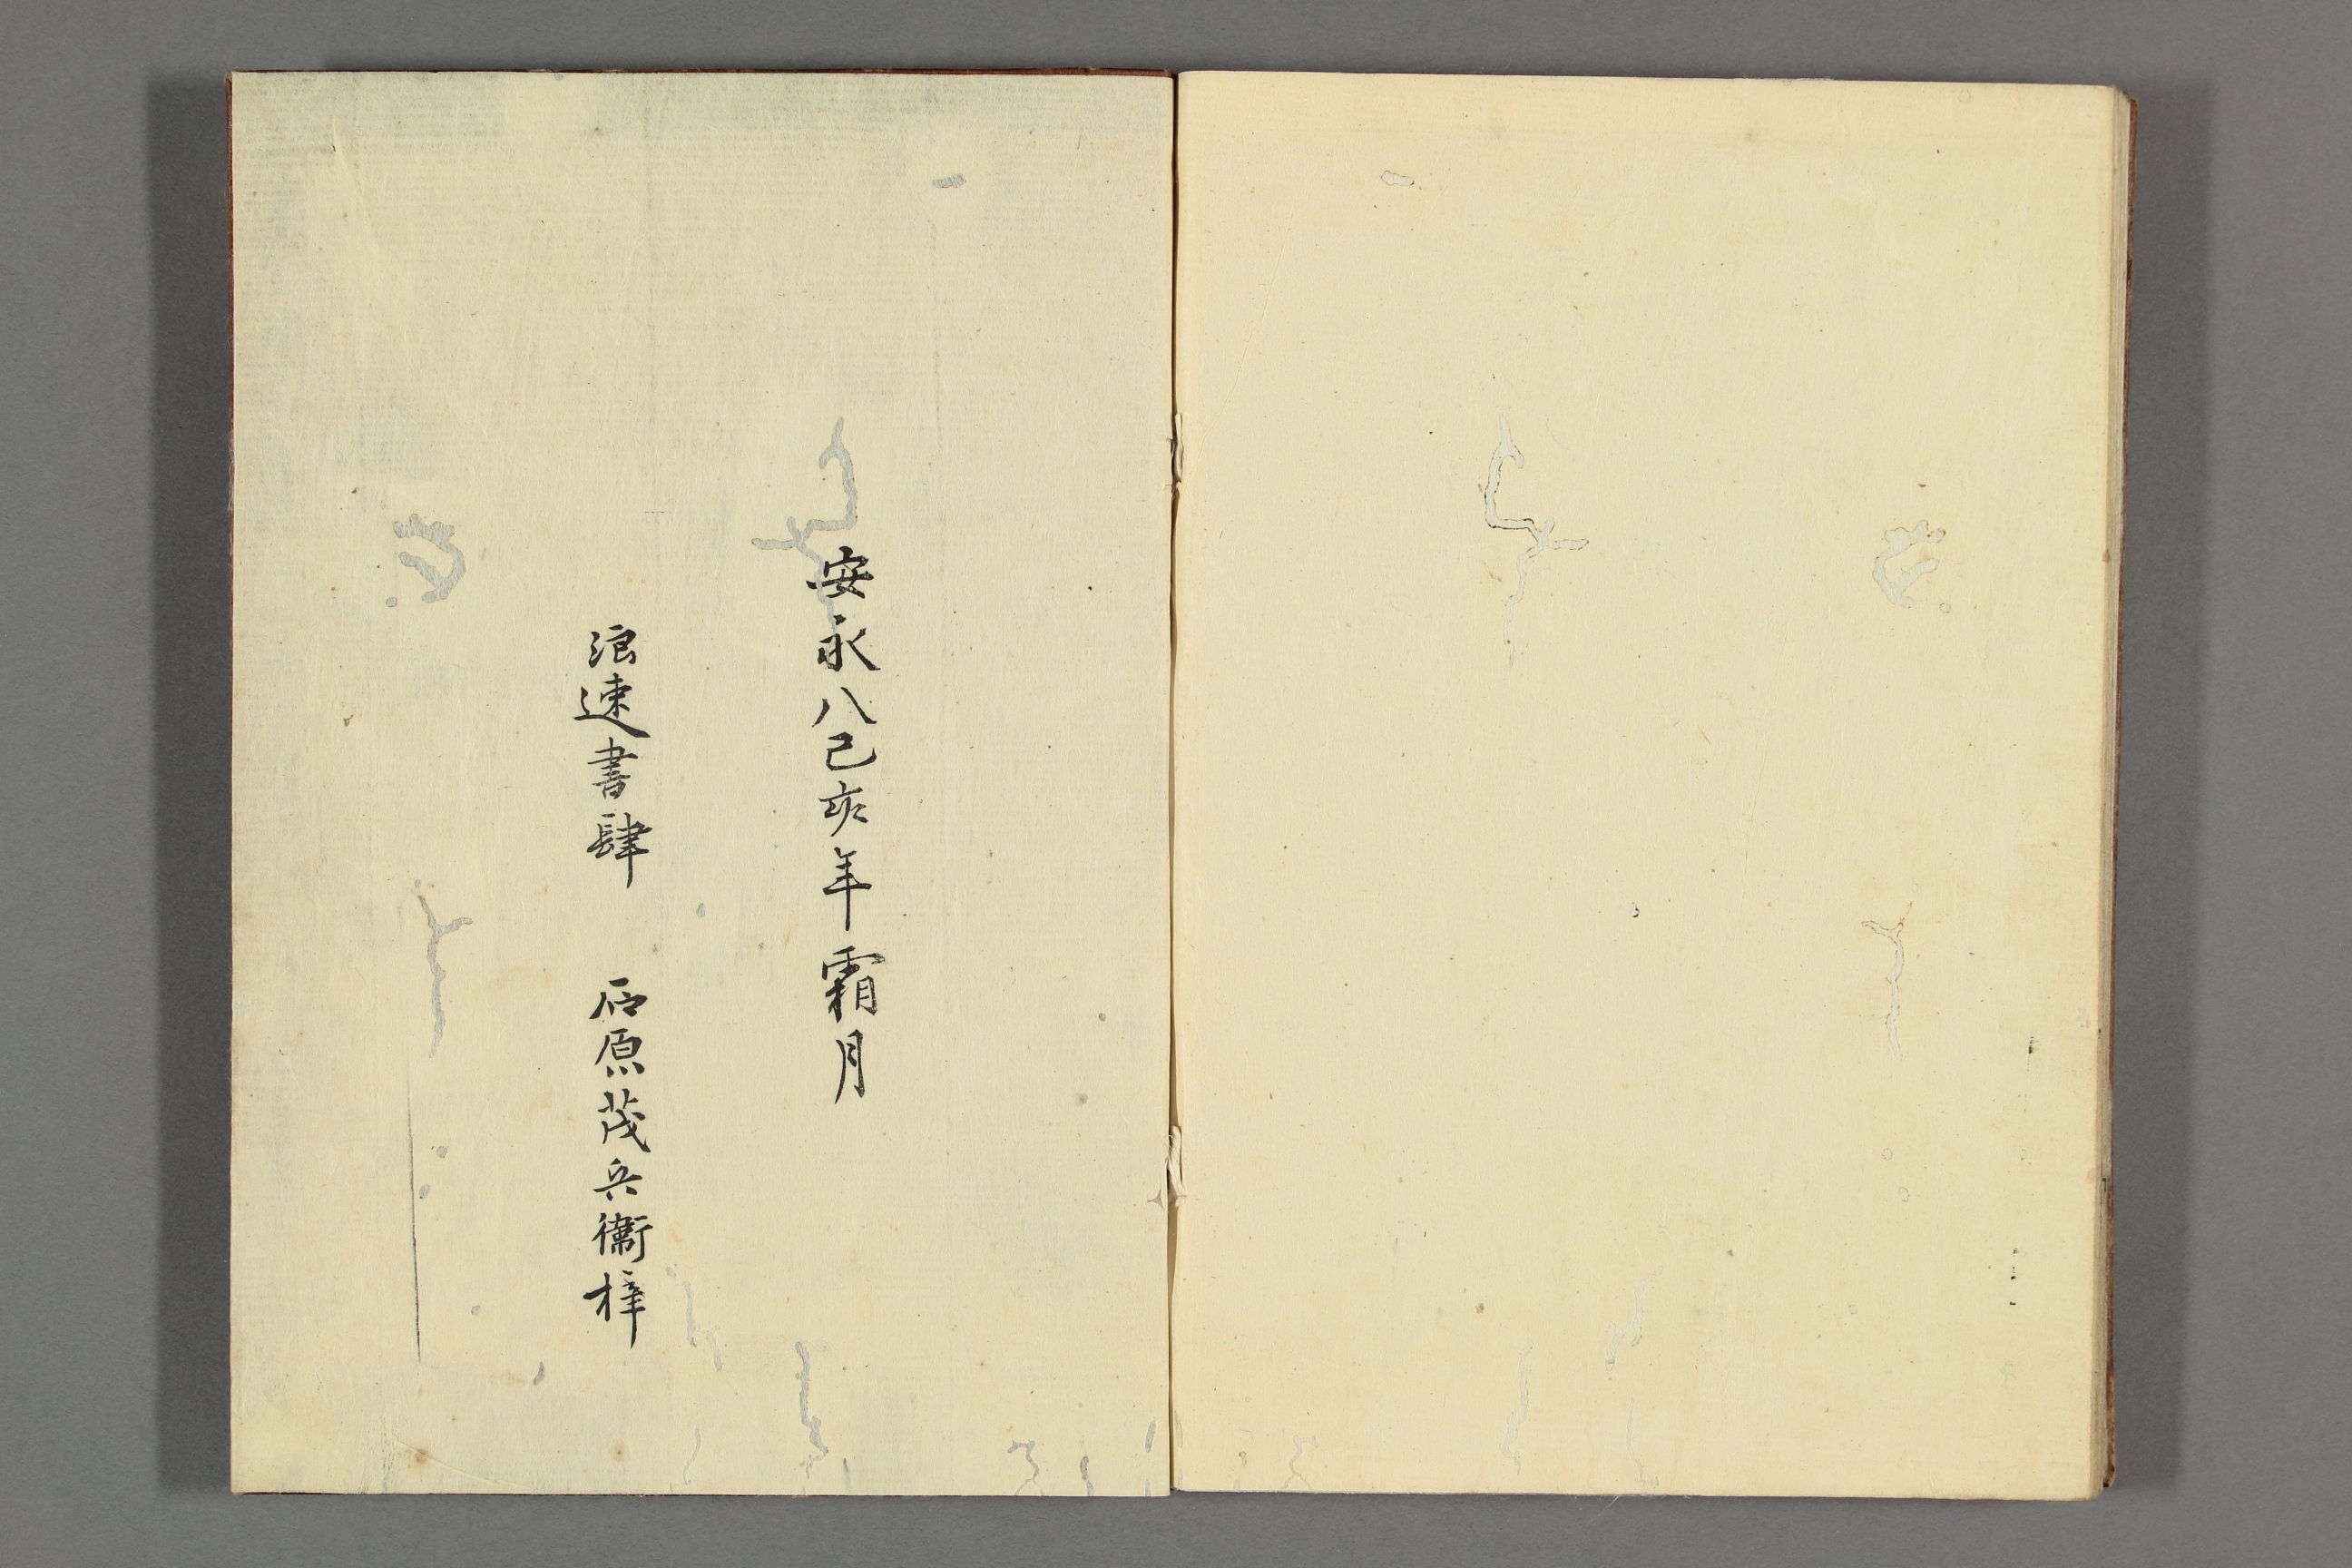 安永八己亥年霜月
浪速書肆　石原茂兵衞梓